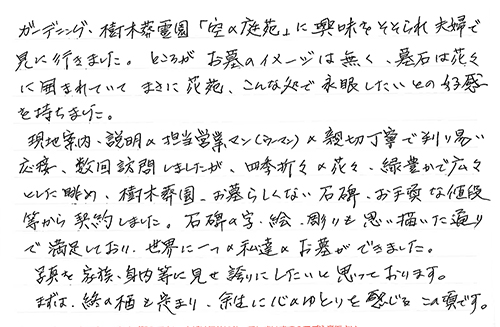 ガーデニング、樹木葬霊園「空の庭苑」に興味をそそられ夫婦で
見に行きました。ところがお墓のイメージは無く、墓石は花々
に囲まれていてまさに花苑、こんな処で永眠したいとの好感
を持ちました。
現地案内、説明の担当営業マン(ウーマン)の親切丁寧で判り易い
応接、数回訪問しましたが、四季折々の花々、緑豊かで広々
とした眺め、樹木葬園、お墓らしくない石碑、お手頃な値段
等から契約しました。石碑の字・絵・彫りも思い描いた通り
で満足しており、世界に一つの私達のお墓ができました。
写真を家族、身内等に見せ誇りにしたいと思っております。
まずは、終の栖も定まり、余生に心のゆとりを感じるこの頃です。